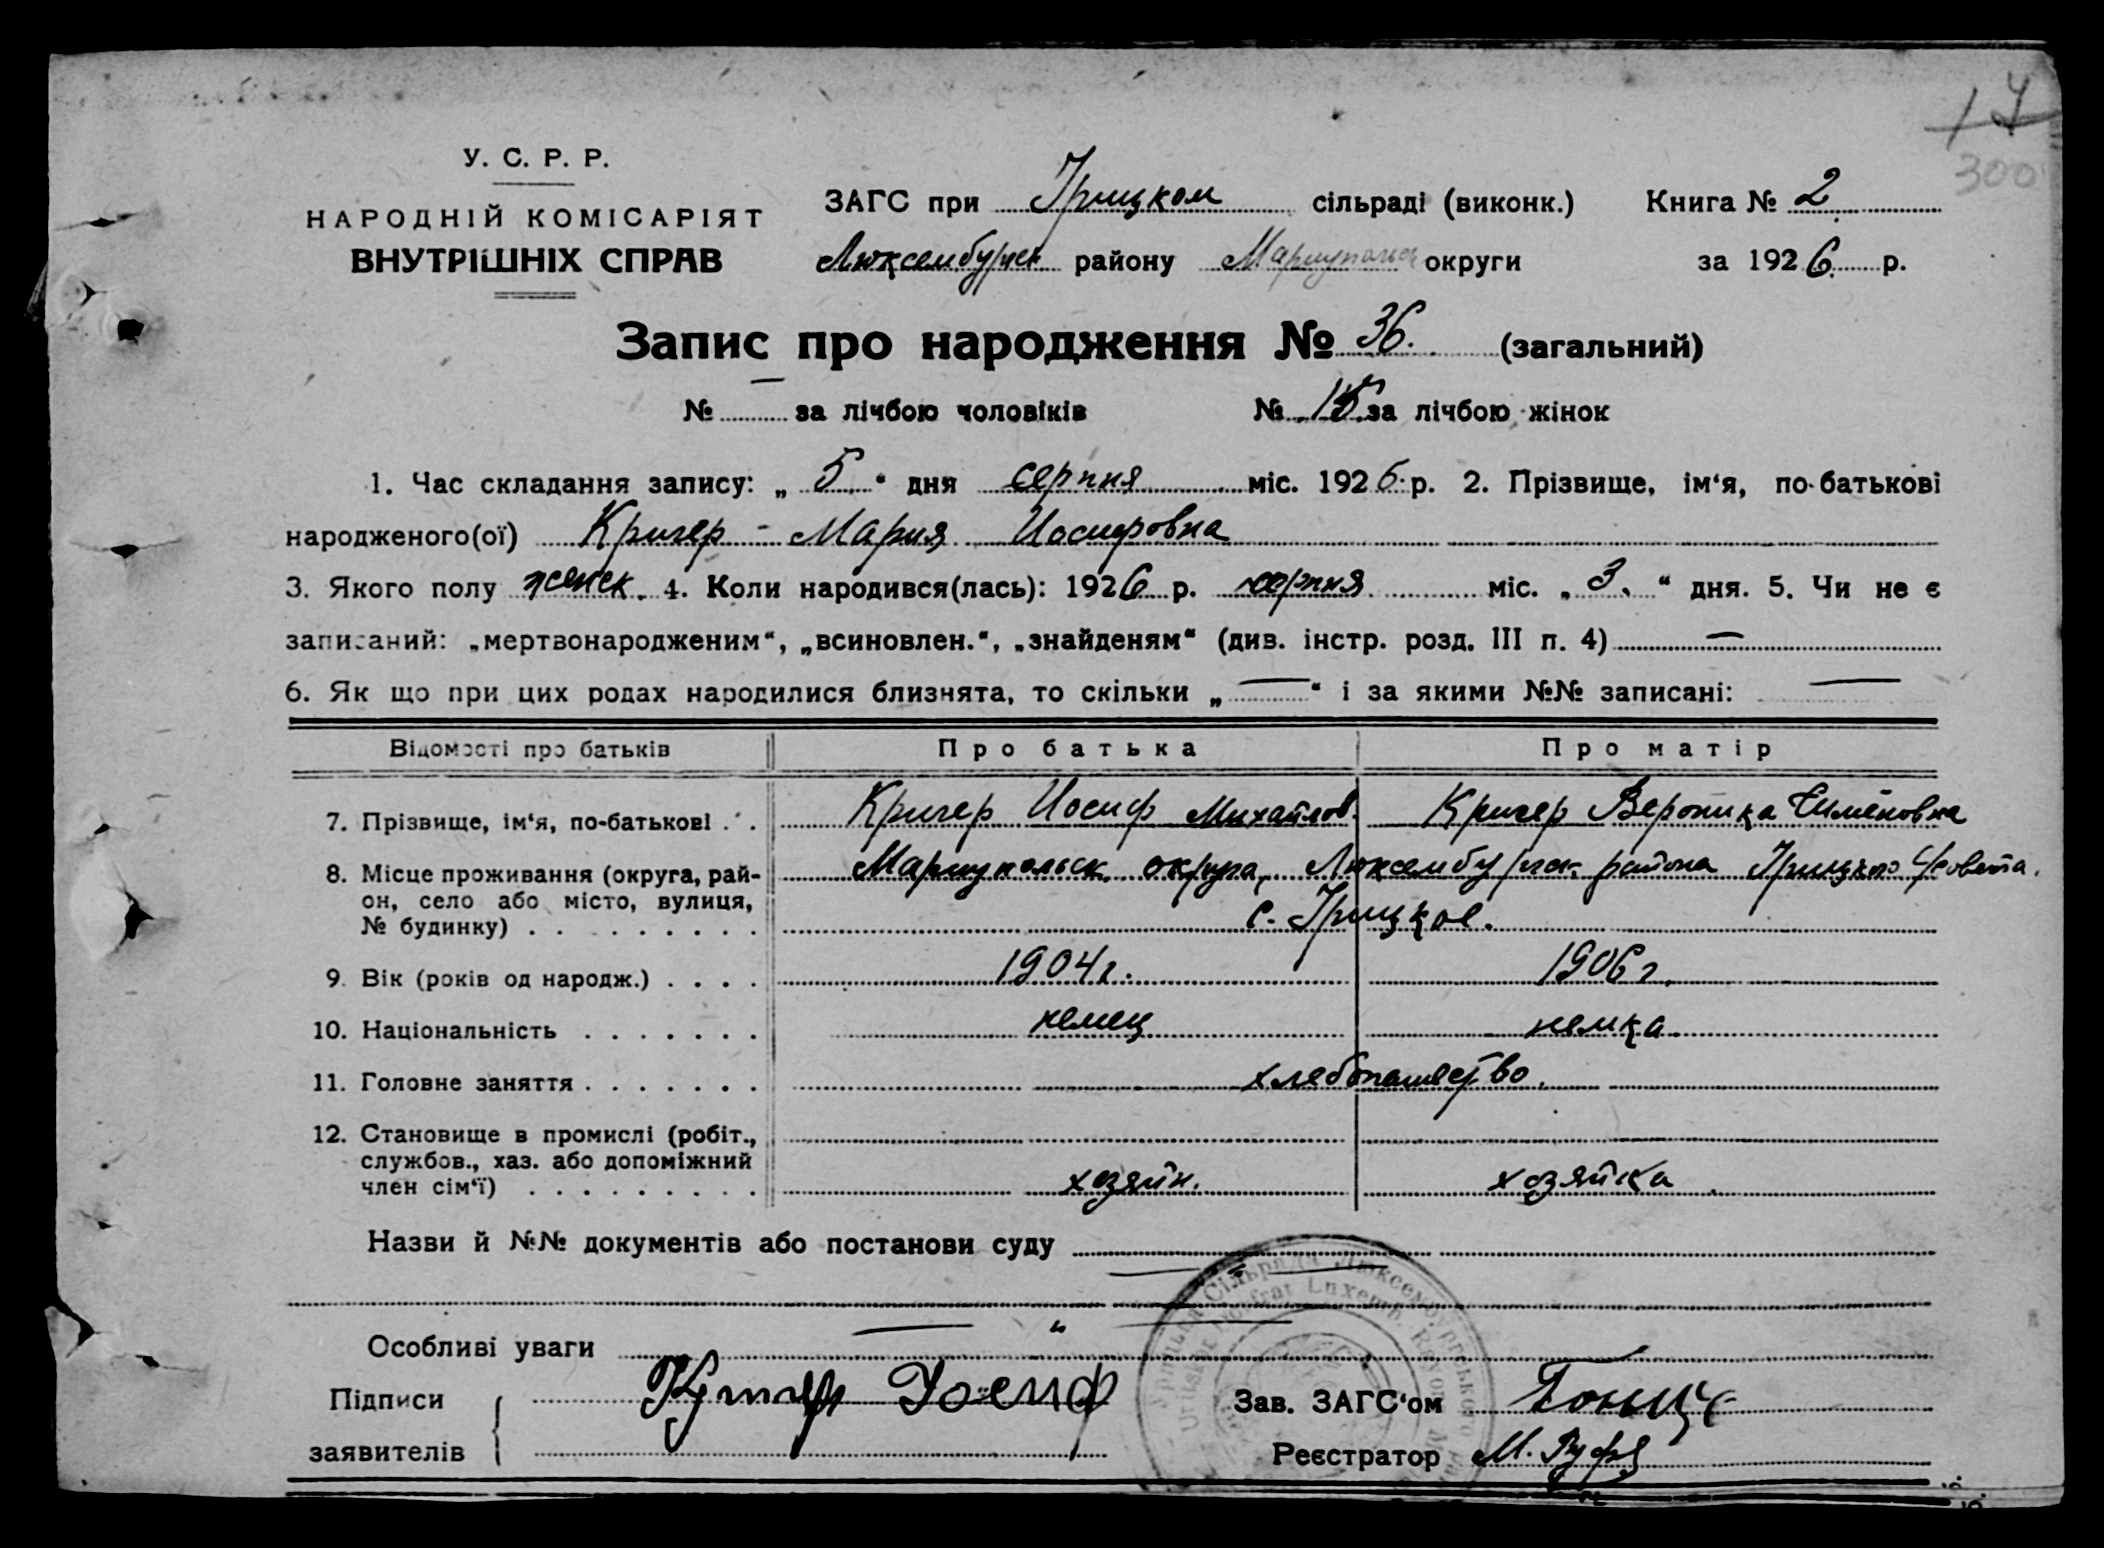 17
300
У. С. Р. Р.
НАРОДНІЙ КОМІСАРІЯТ
ВНУТРІШНІХ СПРАВ
ЗАГС при Урицком сільраді (виконк.) Книга № 2
Люксембургск району Мариупольск округи за 1926 р.
Запис про народження № 36. (загальний)
№ — за лічбою чоловіків № 15 за лічбою жінок
1. Час складання запису: „ 5 “ дня серпня міс. 1926 р. 2. Прізвище, ім‘я, по-батькові
народженого(ої) Кригер - Мария Иосифовна
3. Якого полу женск. 4. Коли народився(лась): 1926 р. серпня міс. „ 3. “ дня. 5. Чи не є
записаний: „мертвонародженим“, „всиновлен.“, „знайденям“ (див. інстр. розд. III п. 4) —
6. Як що при цих родах народилися близнята, то скільки „ — “ і за якими №№ записані: —
Відомості про батьків Про батька Про матір
7. Прізвище, ім‘я, по-батькові . . Кригер Иосиф Михайлов. Кригер Вероника
8. Місце проживання (округа, рай- Мариупольск. округа, Люксембургск. района Урицкого с/совета.
он, село або місто, вулиця, с. Урицкое.
№ будинку) . . . . . . . . .
9. Вік (років од народж.) . . . . 1904 г. 1906 г.
10. Національність . . . . . . . немец немка
11. Головне заняття . . . . . . . хлебопашество.
12. Становище в промислі (робіт.,
службов., хаз. або допоміжний
член сім‘ї) . . . . . . . . . хозяин. хозяйка
Назви й №№ документів або постанови суду — „ —
Особливі уваги — „ —
Підписи Кригер Иосиф Зав. ЗАГС‘ом
заявителів Реєстратор М.